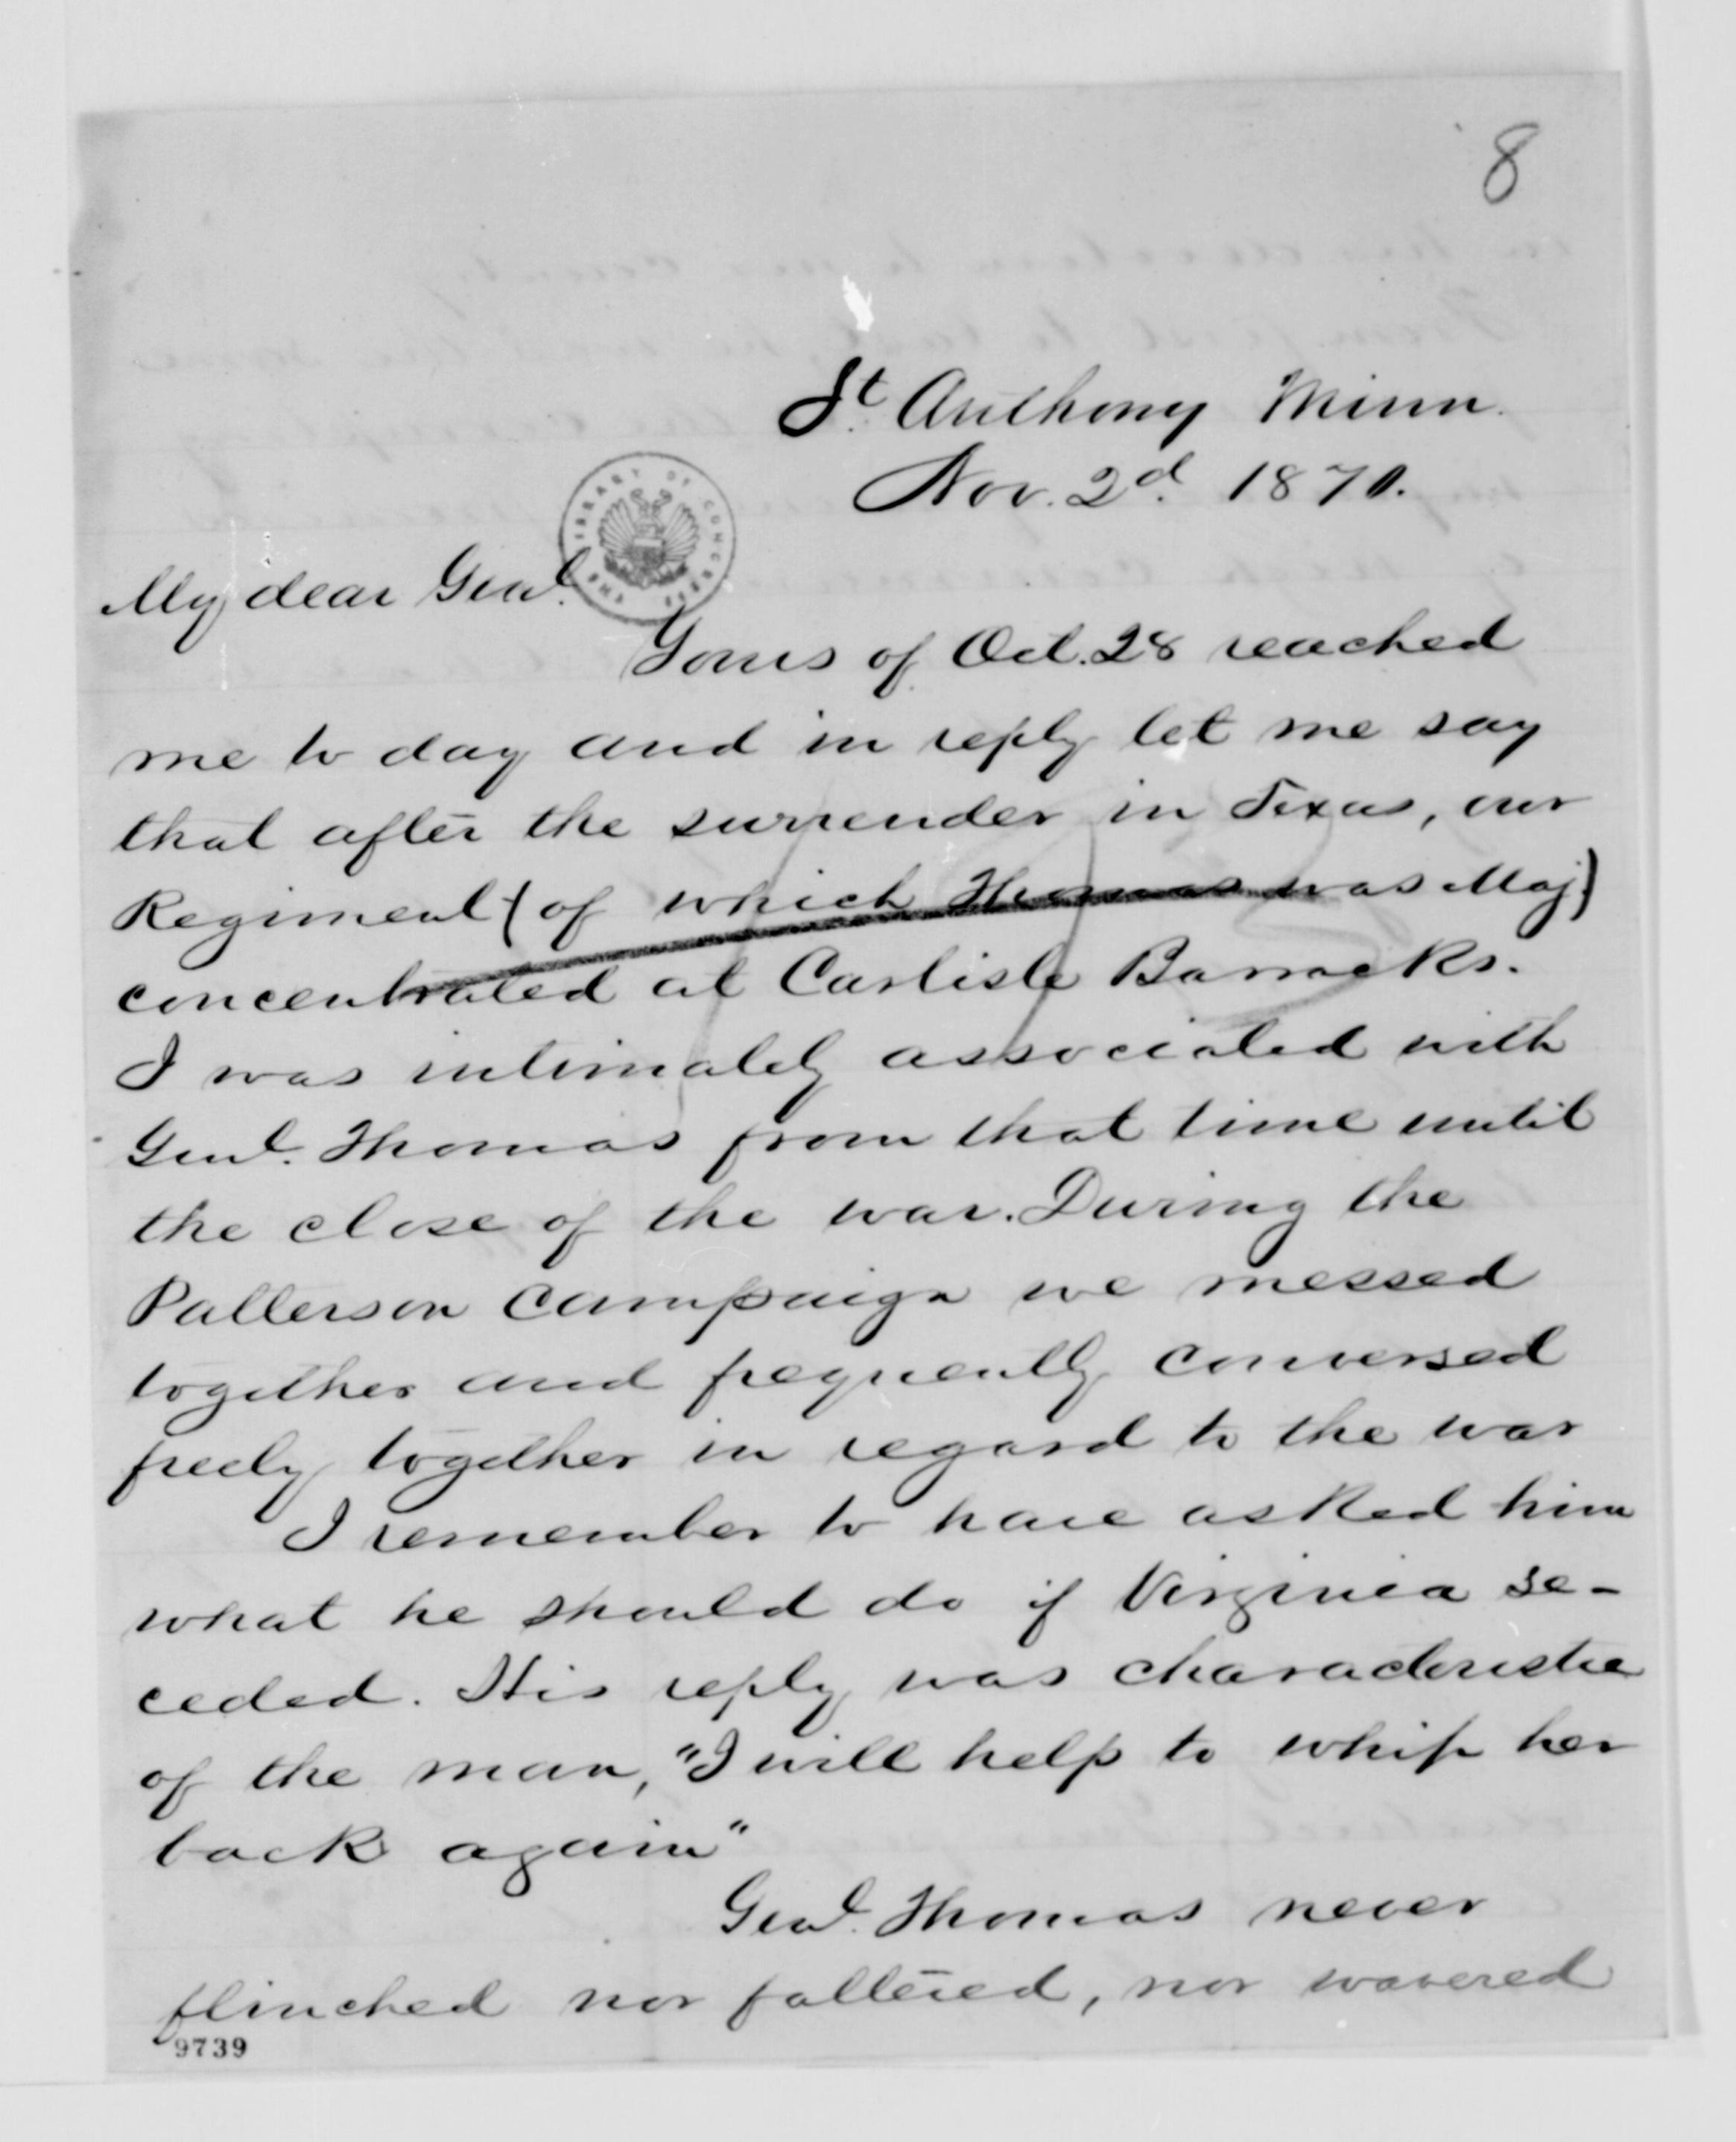 8
St. Anthony Minn.
Nov. 2d. 1870.
THE LIBRARY OF CONGRESS
My dear Genl.
Yours of Oct. 28 reached
me to day and in reply let me say
that after the surrender in Texas, our
Regiment (of which Thomas was Maj)
concentrated at Carlisle Barracks.
I was intimately associated with
Genl. Thomas from that time until
the close of the war. During the
Patterson Campaign we messed
together and frequently conversed
freely together in regard to the war
I remember to have asked him
what he should do if Virginia se-
ceded. His reply was characteristic
of the man, "I will help to whip her
back again"
Genl. Thomas never
flinched nor faltered, nor wavered
9739